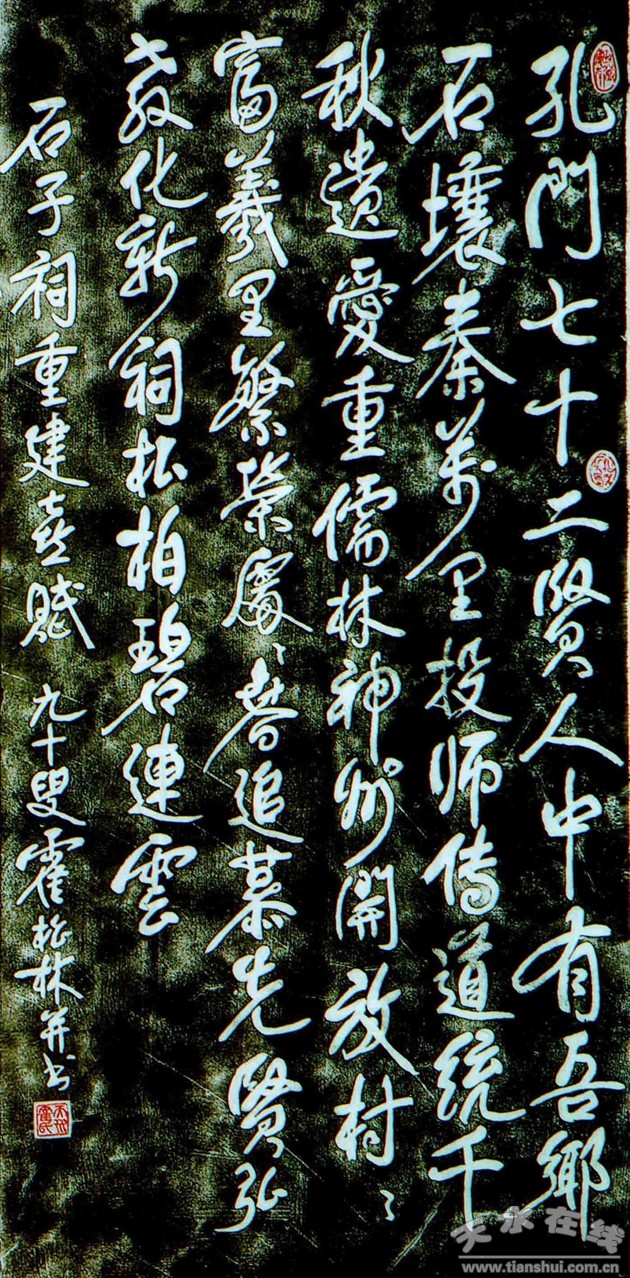 孔門七十二賢人中有吾鄉
石壤秦萬里投师传道統千
秋遺愛重儒林神州開放村々
富羲里繁榮處々春追慕先賢弘
教化新祠松柏碧連雲
石子祠重建喜賦 九十叟霍松林並书
天水在线
www.tianshui.com.cn